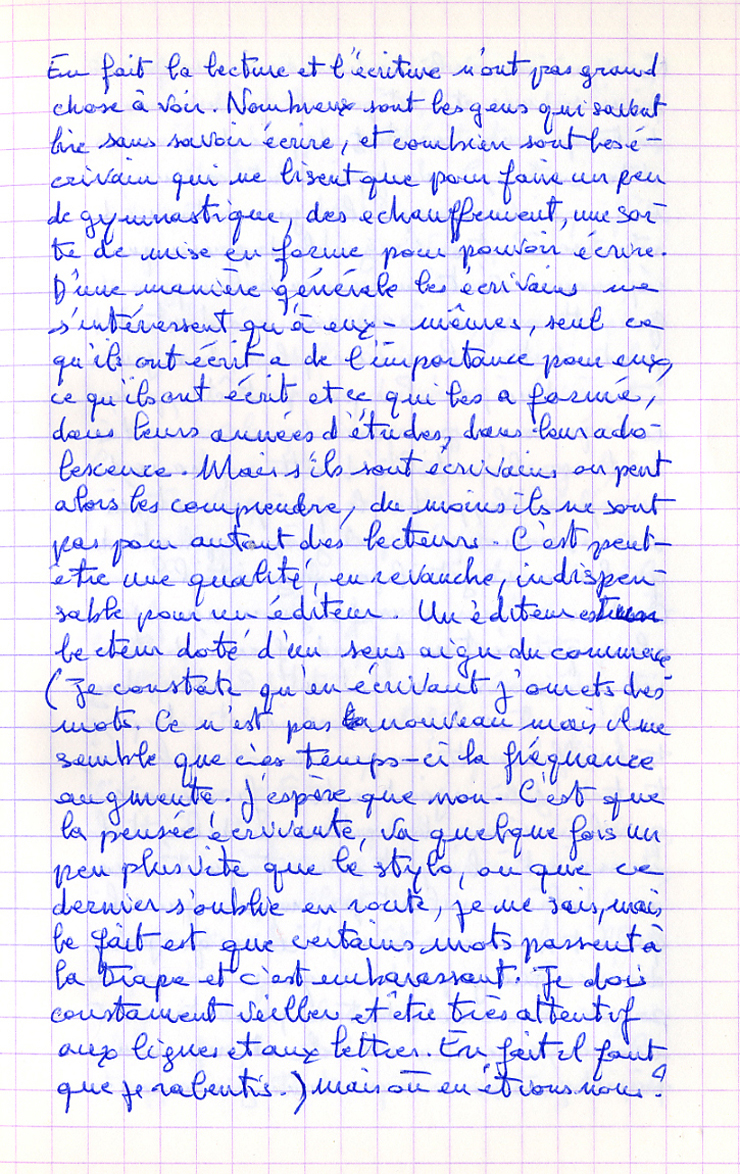 En fait la lecture et l'écriture n'ont pas grand
chose à voir. Nombreux sont les gens qui savent
lire sans savoir écrire, et combien sont les é-
crivain qui ne lisent que pour faire un peu
de gymnastique, des echauffement, une sor-
te de mise en forme pour pouvoir écrire.
D'une manière générale les écrivains ne
s'intéressent qu'à eux-mêmes, seul ce
qu'ils ont écrit a de l'importance pour eux,
ce qu'ils ont écrit et ce qui les a formé,
dans leurs années d'études, dans leur ado-
lescence. Mais s'ils sont écrivains on peut
alors les comprendre, du moins ils ne sont
pas pour autant des lecteurs. C'est peut-
être une qualité, en revanche, indispen-
sable pour un éditeur. Un éditeur est un
lecteur doté d'un sens aigu du commerce
(Je constate qu'en écrivant j'omets des
mots. Ce n'est pas nouveau mais il me
semble que ces temps-ci la fréquance
augmente. J'espère que non. C'est que
la pensée écrivante, va quelque fois un
peu plus vite que le stylo, ou que ce
dernier s'oublie en route, je ne sais, mais
le fait est que certains mots passent à
la trape et c'est embarassant. Je dois
constament veiller et être très attentif
aux lignes et aux lettres. En fait il faut
que je ralentis.) mais où en étions nous ?